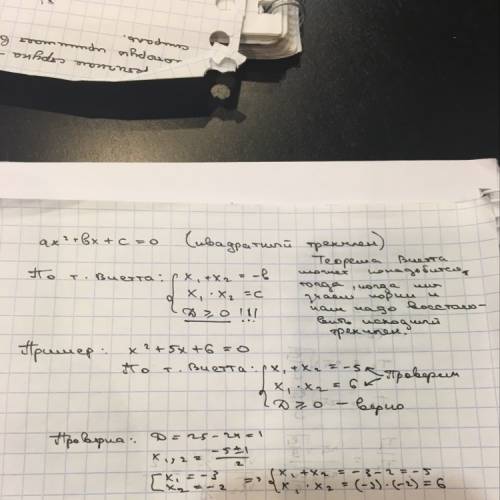 которую принимала в
спираль.
ax²+bx+c=0 (квадратный трехчлен)
По т. Виетта: { x₁+x₂=-b
x₁·x₂=c
D≥0 !!!
Теорема Виетта
может понадобится,
тогда, когда мы
знаем корни и
нам надо восстано-
вить исходный
трехчлен.
Пример: x²+5x+6=0
По т. Виетта: { x₁+x₂=-5
x₁·x₂=6
Проверим
D≥0 – верно
Проверка: D=25-24=1
x₁,₂=(-5±1)/2
[ x₁=-3
x₂=-2
=> { x₁+x₂=-3-2=-5
x₁·x₂=(-3)·(-2)=6